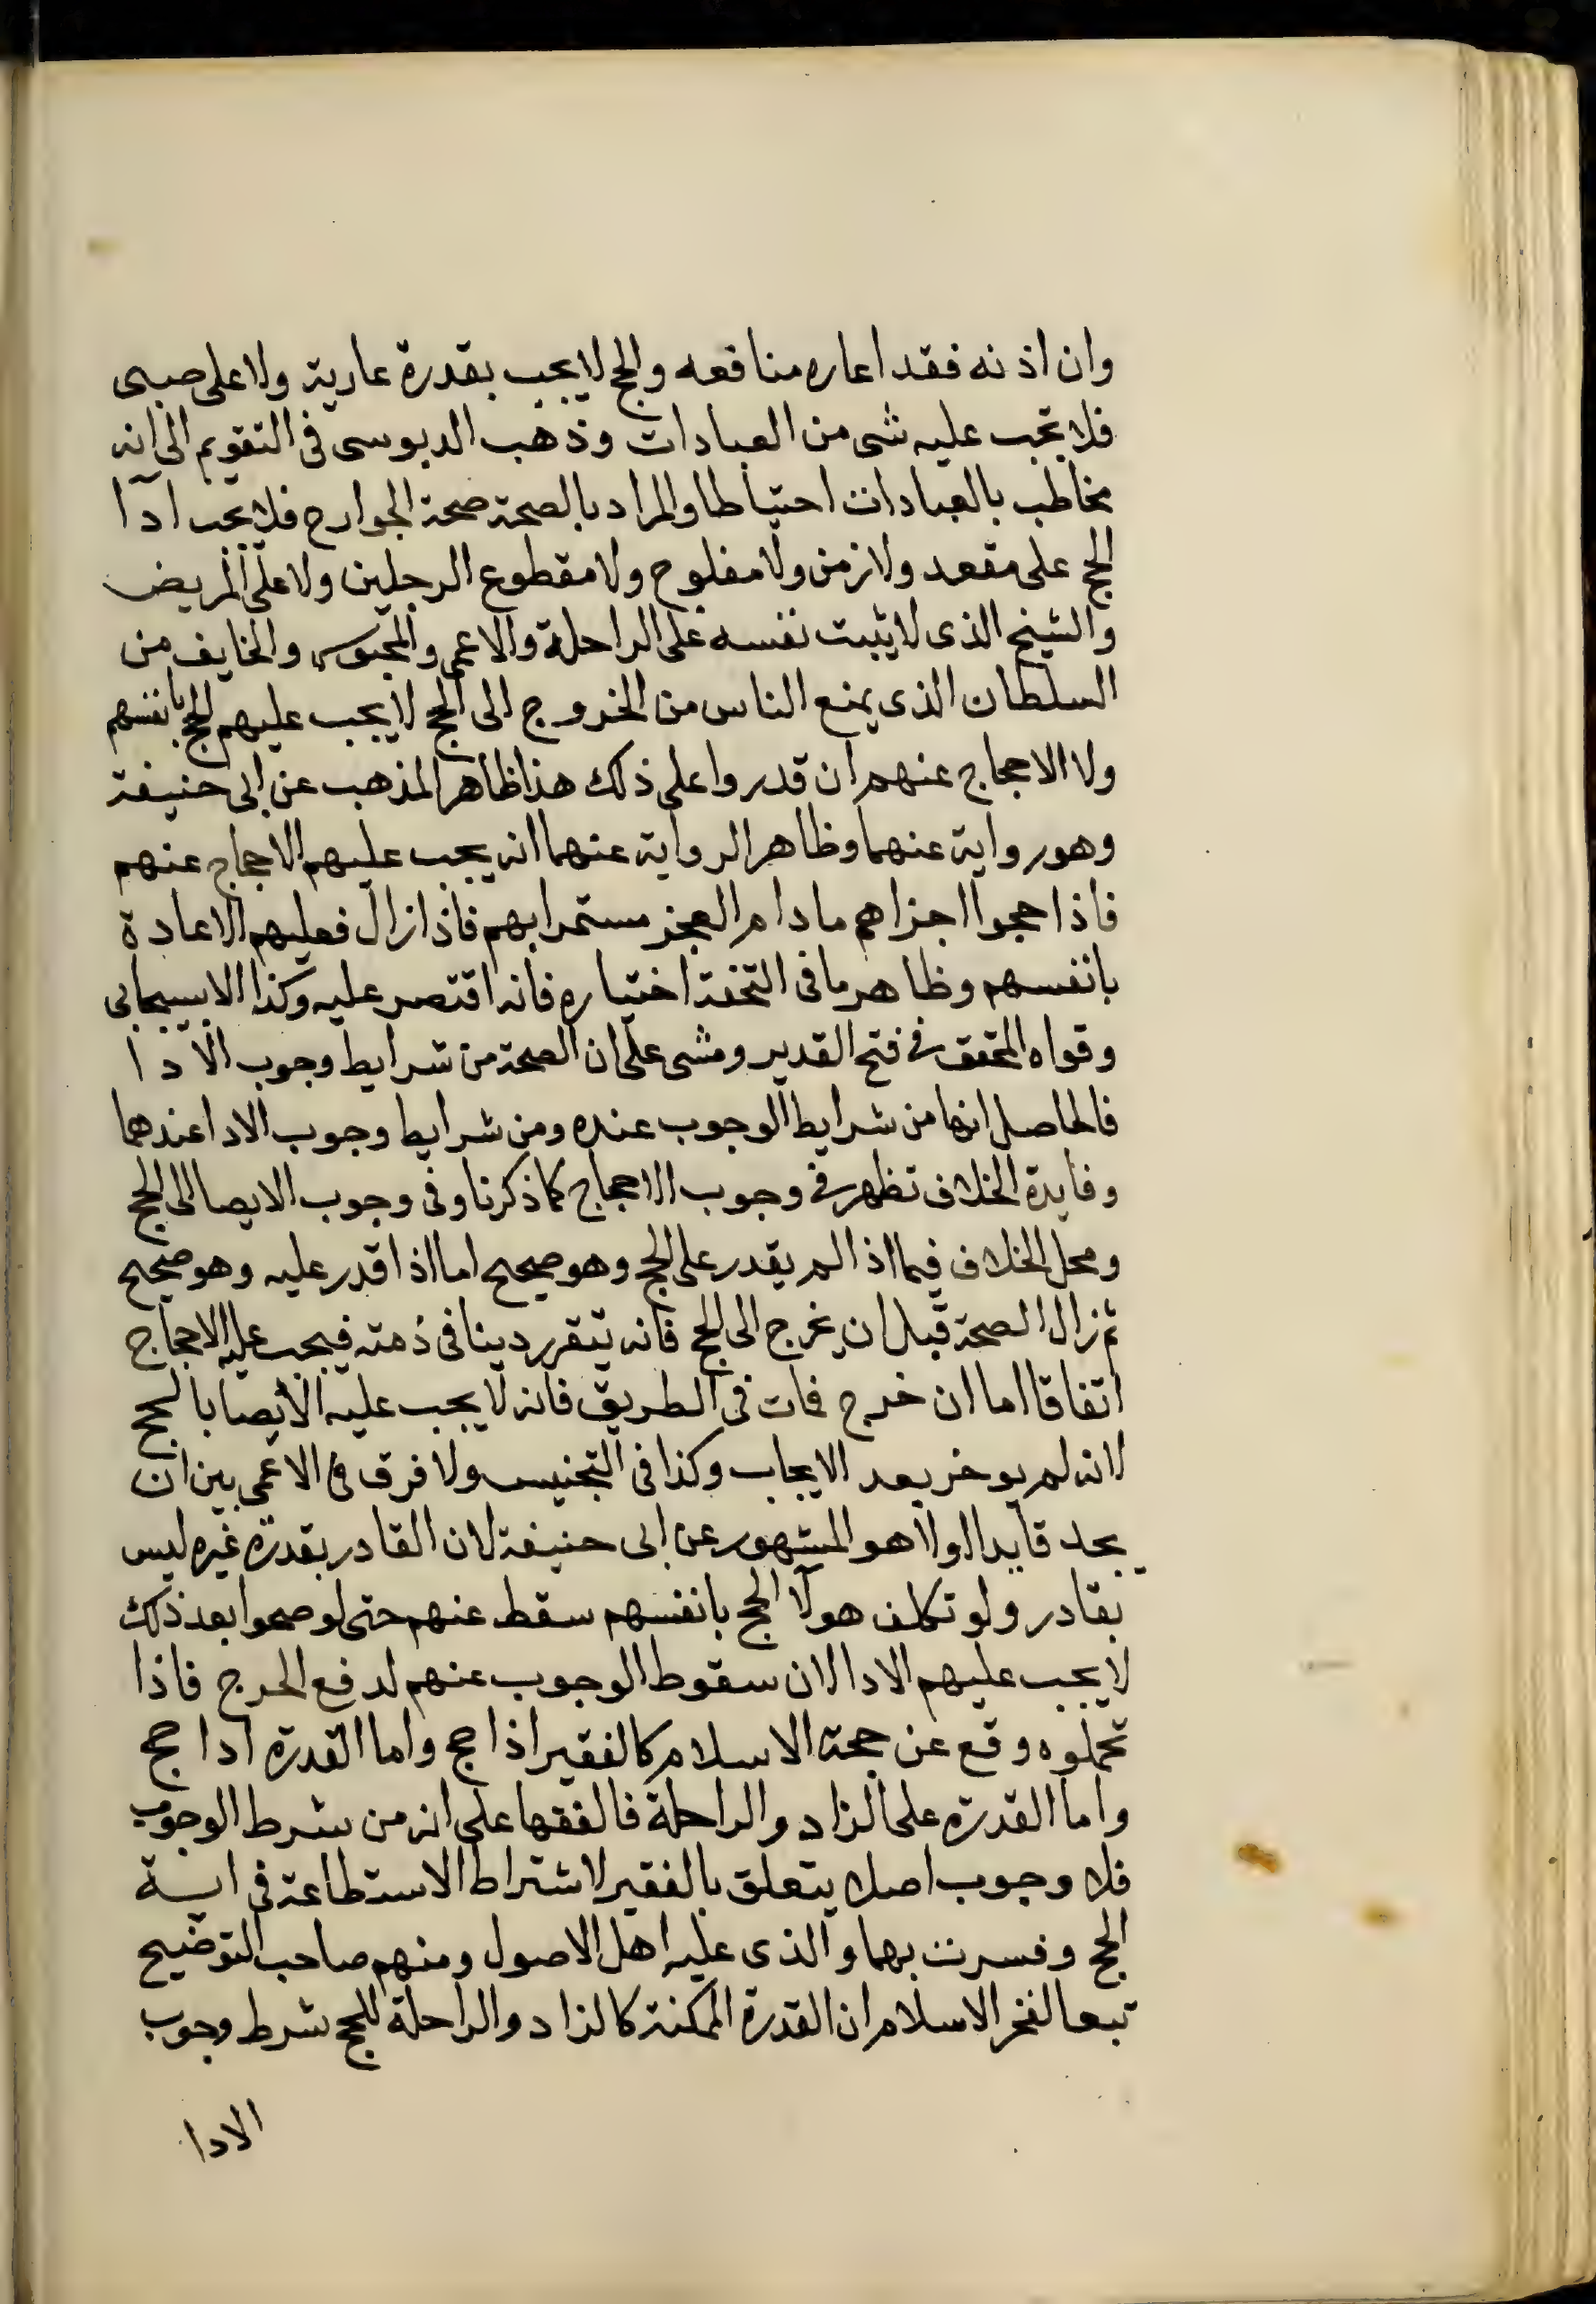 وان اذنه فقد اعاره منافعه والحج لا يجب بقدرة عارية ولا على صبى
فلا تجب عليه شى من العبادات وذهب الدبوسى فى التقويم الى انه
مخاطب بالعبادات احتياطا والمراد بالصحة صحة الجوارح فلا يجب ادآ
الحج على مقعد ولا زمن ولا مفلوج ولا مقطوع الرجلين ولا على المريض
والشيخ الذى لا يثبت نفسه على الراحلة والاعمى والمحبوس والخايف من
السلطان الذى يمنع الناس من الخروج الى الحج لا يجب عليهم الحج بانفسهم
ولا الاحجاج عنهم ان قدروا على ذلك هذا ظاهر المذهب عن ابى حنيفة
وهو رواية عنهما وظاهر الرواية عنهما انه يجب عليهم الاحجاج عنهم
فاذا احجوا اجزاهم ما دام العجز مستمرا بهم فاذا زال فعليهم الاعادة
بانفسهم وظاهر ما فى التحفة اختياره فانه اقتصر عليه وكذا الاسبيجابى
وقواه المحقق فى فتح القدير ومشى على ان الصحة من شرايط وجوب الادا
فالحاصل انها من شرايط الوجوب عنده ومن شرايط وجوب الادا عندهما
وفايدة الخلاف تظهر فى وجوب الاحجاج كما ذكرنا وفى وجوب الايصا الى الحج
ومحل الخلاف فيما اذا لم يقدر على الحج وهو صحيح اما اذا قدر عليه وهو صحيح
ثم زال الصحة قبل ان يخرج الى الحج فانه يتقرر دينا فى ذمته فيجب عليه الاحجاج
اتفاقا اما ان خرج فمات فى الطريق فانه لا يجب عليه الايصا بالحج
لانه لم يوخر بعد الايجاب وكذا فى التجنيس ولا فرق فى الاعمى بين ان
يجد قايدا اولا هو المشهور عن ابى حنيفة لان القادر بقدرة غيره ليس
بقادر ولو تكلف هولآ الحج بانفسهم سقط عنهم حتى لو صحوا بعد ذلك
لا يجب عليهم الادا لان سقوط الوجوب عنهم لدفع الحرج فاذا
تحملوه وقع عن حجة الاسلام كالفقير اذا حج واما القدرة ادا حج
واما القدرة على الزاد والراحلة فالفقها على انه من شرط الوجوب
فلا وجوب اصلا يتعلق بالفقير لاشتراط الاستطاعة فى اية
الحج وفسرت بهما والذى عليه اهل الاصول ومنهم صاحب التوضيح
تبعا لفخر الاسلام ان القدرة الممكنة كالزاد والراحلة للحج شرط وجوب
الادا